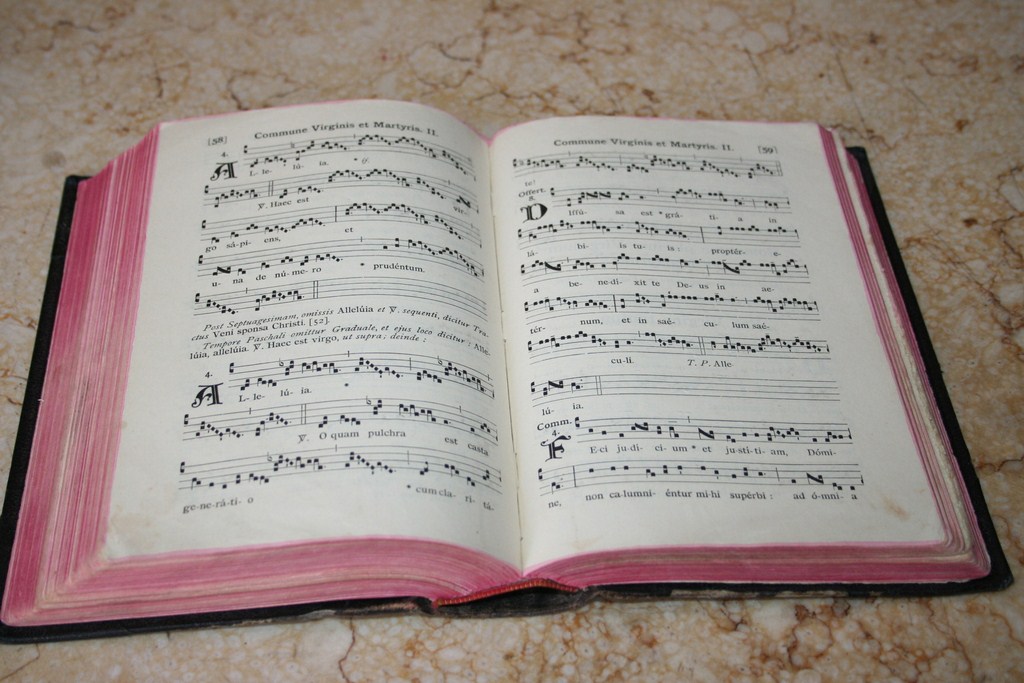 [58]
Commune Virginis et Martyris. II.
4.
AL- le- lú- ia. * ij.
℣. Haec est vir-
go sá-pi- ens, et
u- na de nú-me-ro * prudéntum.
Post Septuagesimam, omissis Allelúia et ℣. sequenti, dicitur Tra-
ctus Veni sponsa Christi. [52].
Tempore Paschali omittur Graduale, et ejus loco dicitur : Alle-
lúia, allelúia. ℣. Haec est virgo, ut supra ; deinde :
4.
AL- le- lú- ia. *
℣. O quam pulchra est casta
ge-ne-rá-ti- o * cum cla- ri- tá-
Commune Virginis et Martyris. II.
[59]
te!
Offert.
8.
DIffú- sa est * grá- ti- a in
lá- bi- is tu-is : proptér- e-
a be-ne-di- xit te De-us in ae-
tér- num, et in saé- cu- lum saé-
cu-li. T. P. Alle-
lú- ia.
Comm.
4.
FEci ju-dí- ci-um * et ju-stí-ti- am, Dómi-
ne, non ca-lumni- éntur mi-hi supérbi : ad ó-mni- a